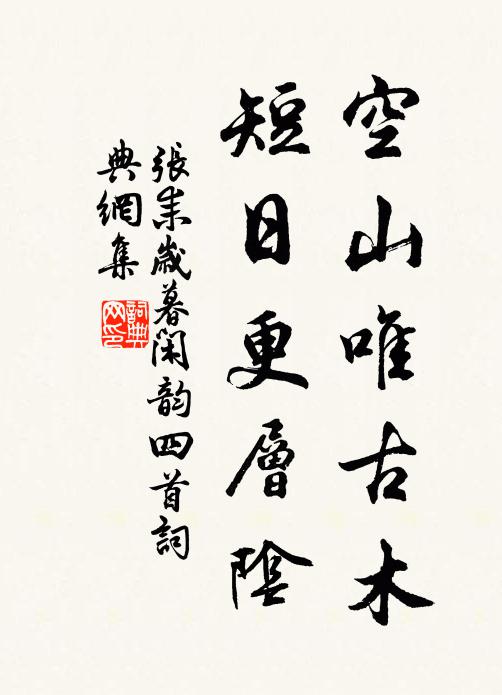 空山唯古木
短日更層陰
張耒歲暮閑韵四首詞
典網集
詞典
网印